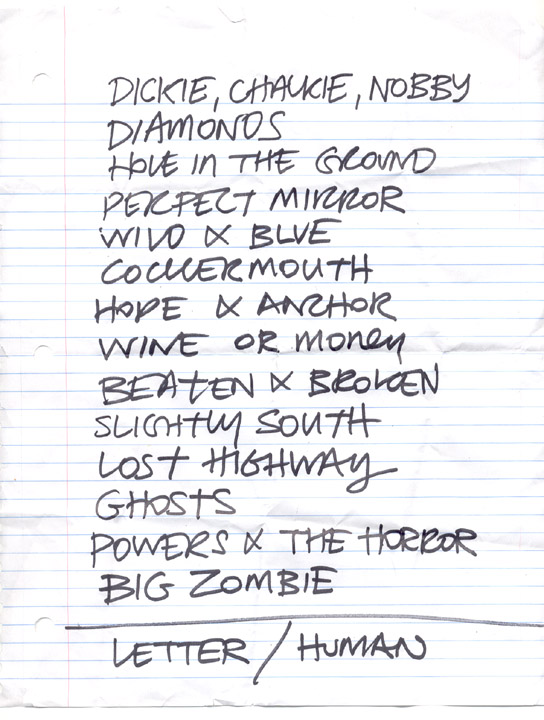 DICKIE, CHALKIE, NOBBY
DIAMONDS
HOLE IN THE GROUND
PERFECT MIRROR
WILD & BLUE
COCKERMOUTH
HOPE & ANCHOR
WINE OR MONEY
BEATEN & BROKEN
SLIGHTLY SOUTH
LOST HIGHWAY
GHOSTS
POWERS & THE HORROR
BIG ZOMBIE
LETTER / HUMAN